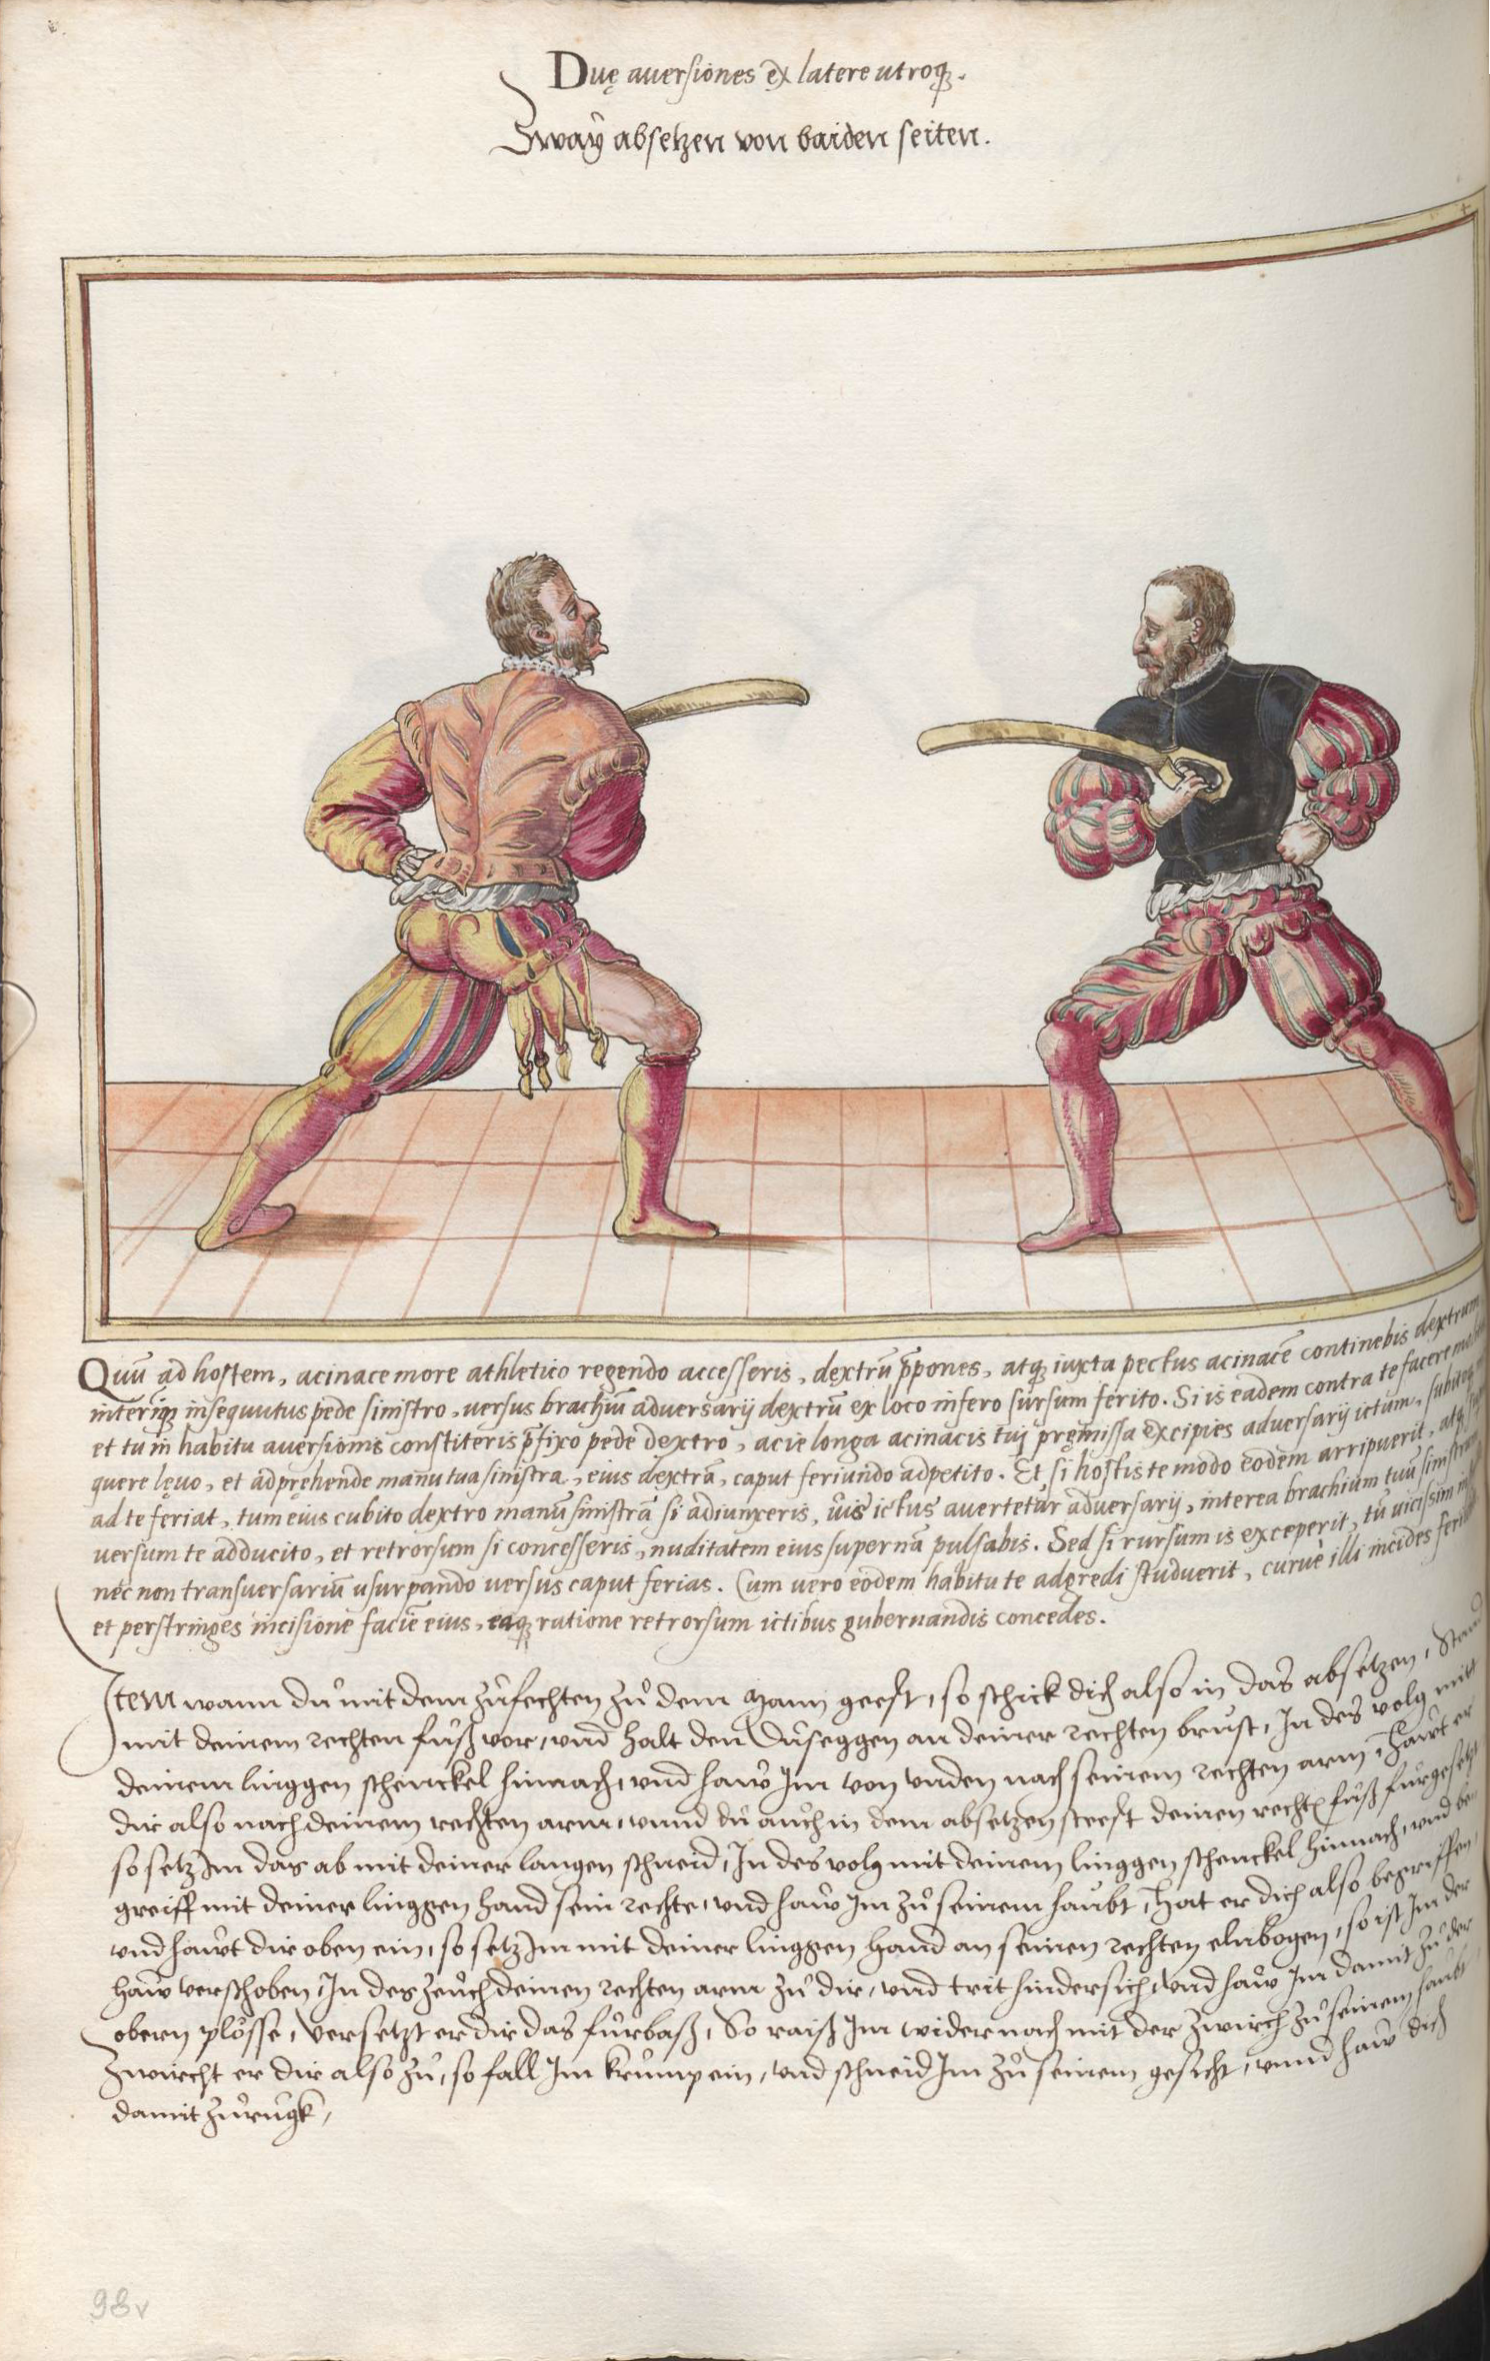 Duę auersiones ex latere utroq̃.
Zwaÿ absetzen von baiden seiten.
Quũ ad hostem, acinace more athletico regendo accesseris, dextrũ p̃pones, atq̃ iuxta pectus acinacẽ continebis dextrum
interim̃q̃ insequutus pede sinistro, uersus brachiũ aduersarij dextrũ ex loco infero sursum ferito. Si is eadem contra te facere
et tu in habitu auersionis constiteris p̃fixo pede dextro, acie longa acinacis tuj pręmissa excipies aduersarij ictum, subitoq̃
quere lęuo, et adpręhende manu tua sinistra, eius dextrã, caput feriundo adpetito. Et si hostis te modo eodem arripuerit, atq̃
ad te feriat, tum eius cubito dextro manũ sinistrã si adiunxeris, uis ictus auertetur aduersarij, interea brachium tuũ sinistrum
uersum te adducito, et retrorsum si concesseris, nuditatem eius supernã pulsabis. Sed si rursum is exceperit, tũ uicissim
nec non transuersariũ usurpando uersus caput ferias. Cum uero eodem habitu te adgredi studuerit, curuè illi incides
et perstringes incisione faciẽ eius, eaq̃ ratione retrorsum ictibus gubernandis concedes.
Item wann dů mit dem zůfechten zů dem Mann geest, so schick dich also in das absetzen, Stand
mit deinem rechten fůß vor, vnd halt den Důseggen an deiner rechten brust, In des volg mitt
deinem linggen schenckel hinnach, vnd haw Im von vnden nach seinem rechten arm, Hawt er
dir also nach deinem rechten arm, vnnd dů auch in dem absetzen steest deinen rechtẽ fůß fůrgesetzt
so setz Im das ab mit deiner langen schneid, In des volg mit deinem linggen schenckel hinnach, vnd
greiff mit deiner linggen hand sein rechte, vnd haw Im zů seinem haubt, Hat er dich also begriffen,
vnd hawt dir oben ein, so setz Im mit deiner linggen hand an seinen rechten elnbogen, so ist Im der
haw verschoben, In des zeuch deinen rechten arm zů dir, vnd trit hindersich, vnd haw Im damit zů der
obern plösse, Versetzt er dir das fůrbaß, So raiß Im wider nach mit der zwirch zů seinem haubt
Zwircht er dir also zů, so fall Im krump ein, vnd schneid Im zů seinem gesicht, vnnd haw dich
damit zůrugk,
98v